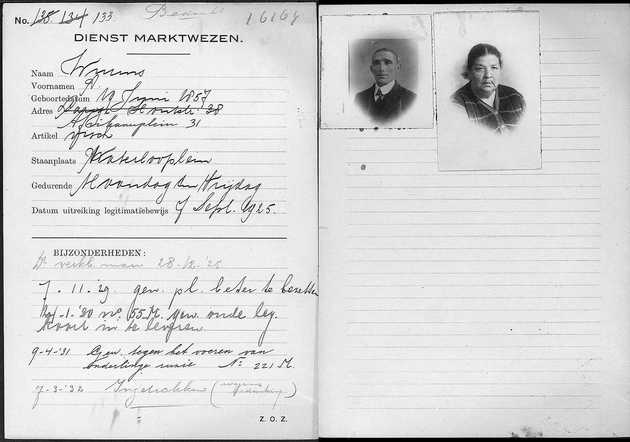 No. 138. 134 133 16164
DIENST MARKTWEZEN.
Naam
Voornamen
Geboortedatum 19 Juni 1857
Adres 38
Afrikanerplein 31
Artikel visch
Staanplaats Waterlooplein
Gedurende Maandag t/m Vrijdag
Datum uitreiking legitimatiebewijs 7 Sept. 1925.
BIJZONDERHEDEN:
verkl. man 28-12-'25
7.11.29 gew. pl. beter te bezetten
-1-'30 No. 55 M. gew. oude leg.
kaart in te leveren
9-4-'31 Gew. tegen het voeren van
onderlinge ruzie No 221 M.
7-3-'32 Ingetrokken (wegens
Z. O. Z.